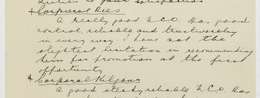 Corporal Lees
A really good N.C.O. Has good
control, reliable and trustworthy
in every way. I have not the
slightest hesitation in recommending
him for promotion at the first
opportunity
Corporal
A good steady reliable N.C.O. has